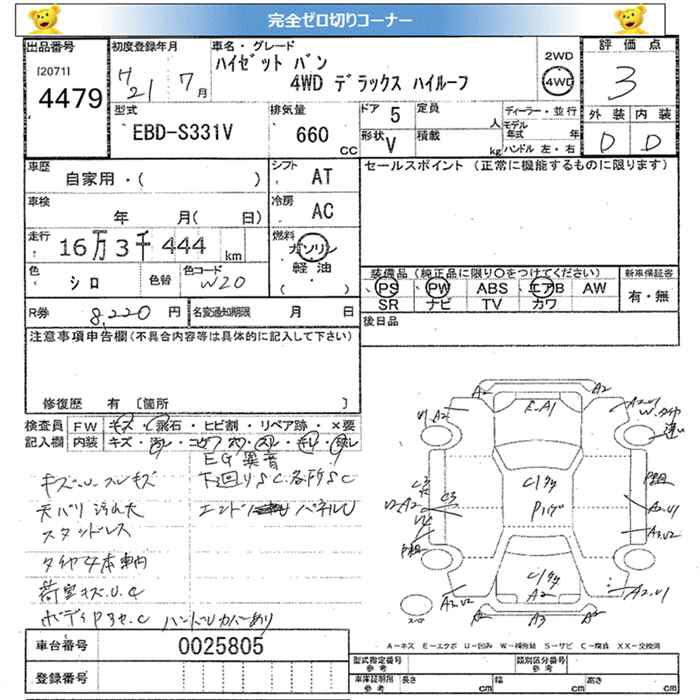 完全ゼロ切りコーナー
出品番号
[2071]
4479
初度登録年月
H 21 7 月
車名・グレード
ハイゼット バン
4WD デラックス ハイルーフ
2WD
4WD
評価点
3
外装 内装
D D
型式
EBD-S331V
排気量
660 CC
ドア 5
形状 V
定員 人
積載 kg
ディーラー・並行
モデル年式 年
ハンドル 左・右
車歴
自家用・( )
シフト AT
車検
年 月( 日)
冷房 AC
走行
16万3千444 km
燃料
ガソリン
軽油
( )
色
シロ
色替
色コード
W20
R券 8,220 円
名変通知期限 月 日
セールスポイント (正常に機能するものに限ります)
装備品 (純正品に限り○をつけてください)
PS PW ABS エアB AW
SR ナビ TV カワ
新車保証書
有・無
後日品
注意事項申告欄(不具合内容等は具体的に記入して下さい)
修復歴 有 〔箇所 〕
検査員記入欄
FW キズ・飛石・ヒビ割・リペア跡・×要
内装
EG異音
下回りSC各所SC
キズ・U
天バリ汚れ大
スタッドレス
タイヤ4本車内
荷室キズ.U.C
ハンドルカバーあり
A2 A2
E・A1
U1 A2
A2U1
W
C3
U2・A2 C3
A2U1
A2U2
A2U2
A2
A3
A2
A2U1
A-キズ E-エクボ U-凹み W-補修跡 S-サビ C-腐食 XX-交換済
車台番号
0025805
登録番号
型式指定番号 参考
類別区分番号 参考
車庫証明用 参考
長さ cm
幅 cm
高さ cm